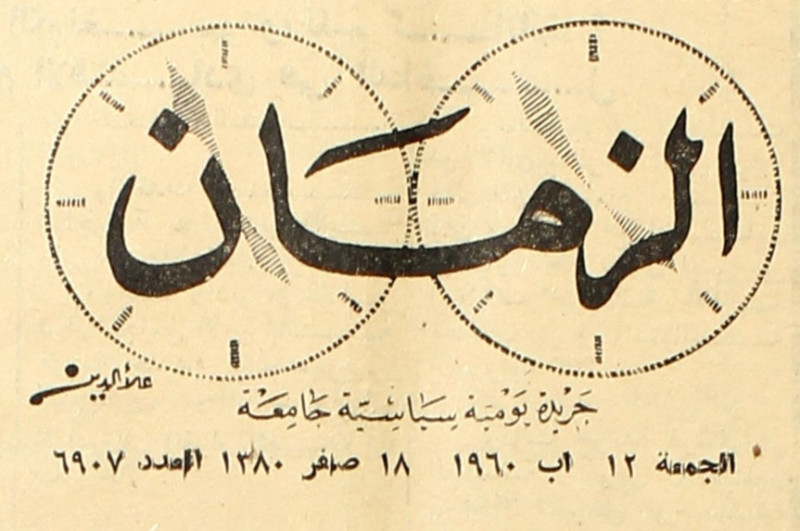 الزمان
علاء الدين
جريدة يومية سياسية جامعة
الجمعة ١٢ اب ١٩٦٠ ١٨ صفر ١٣٨٠ العدد ٦٩٠٧